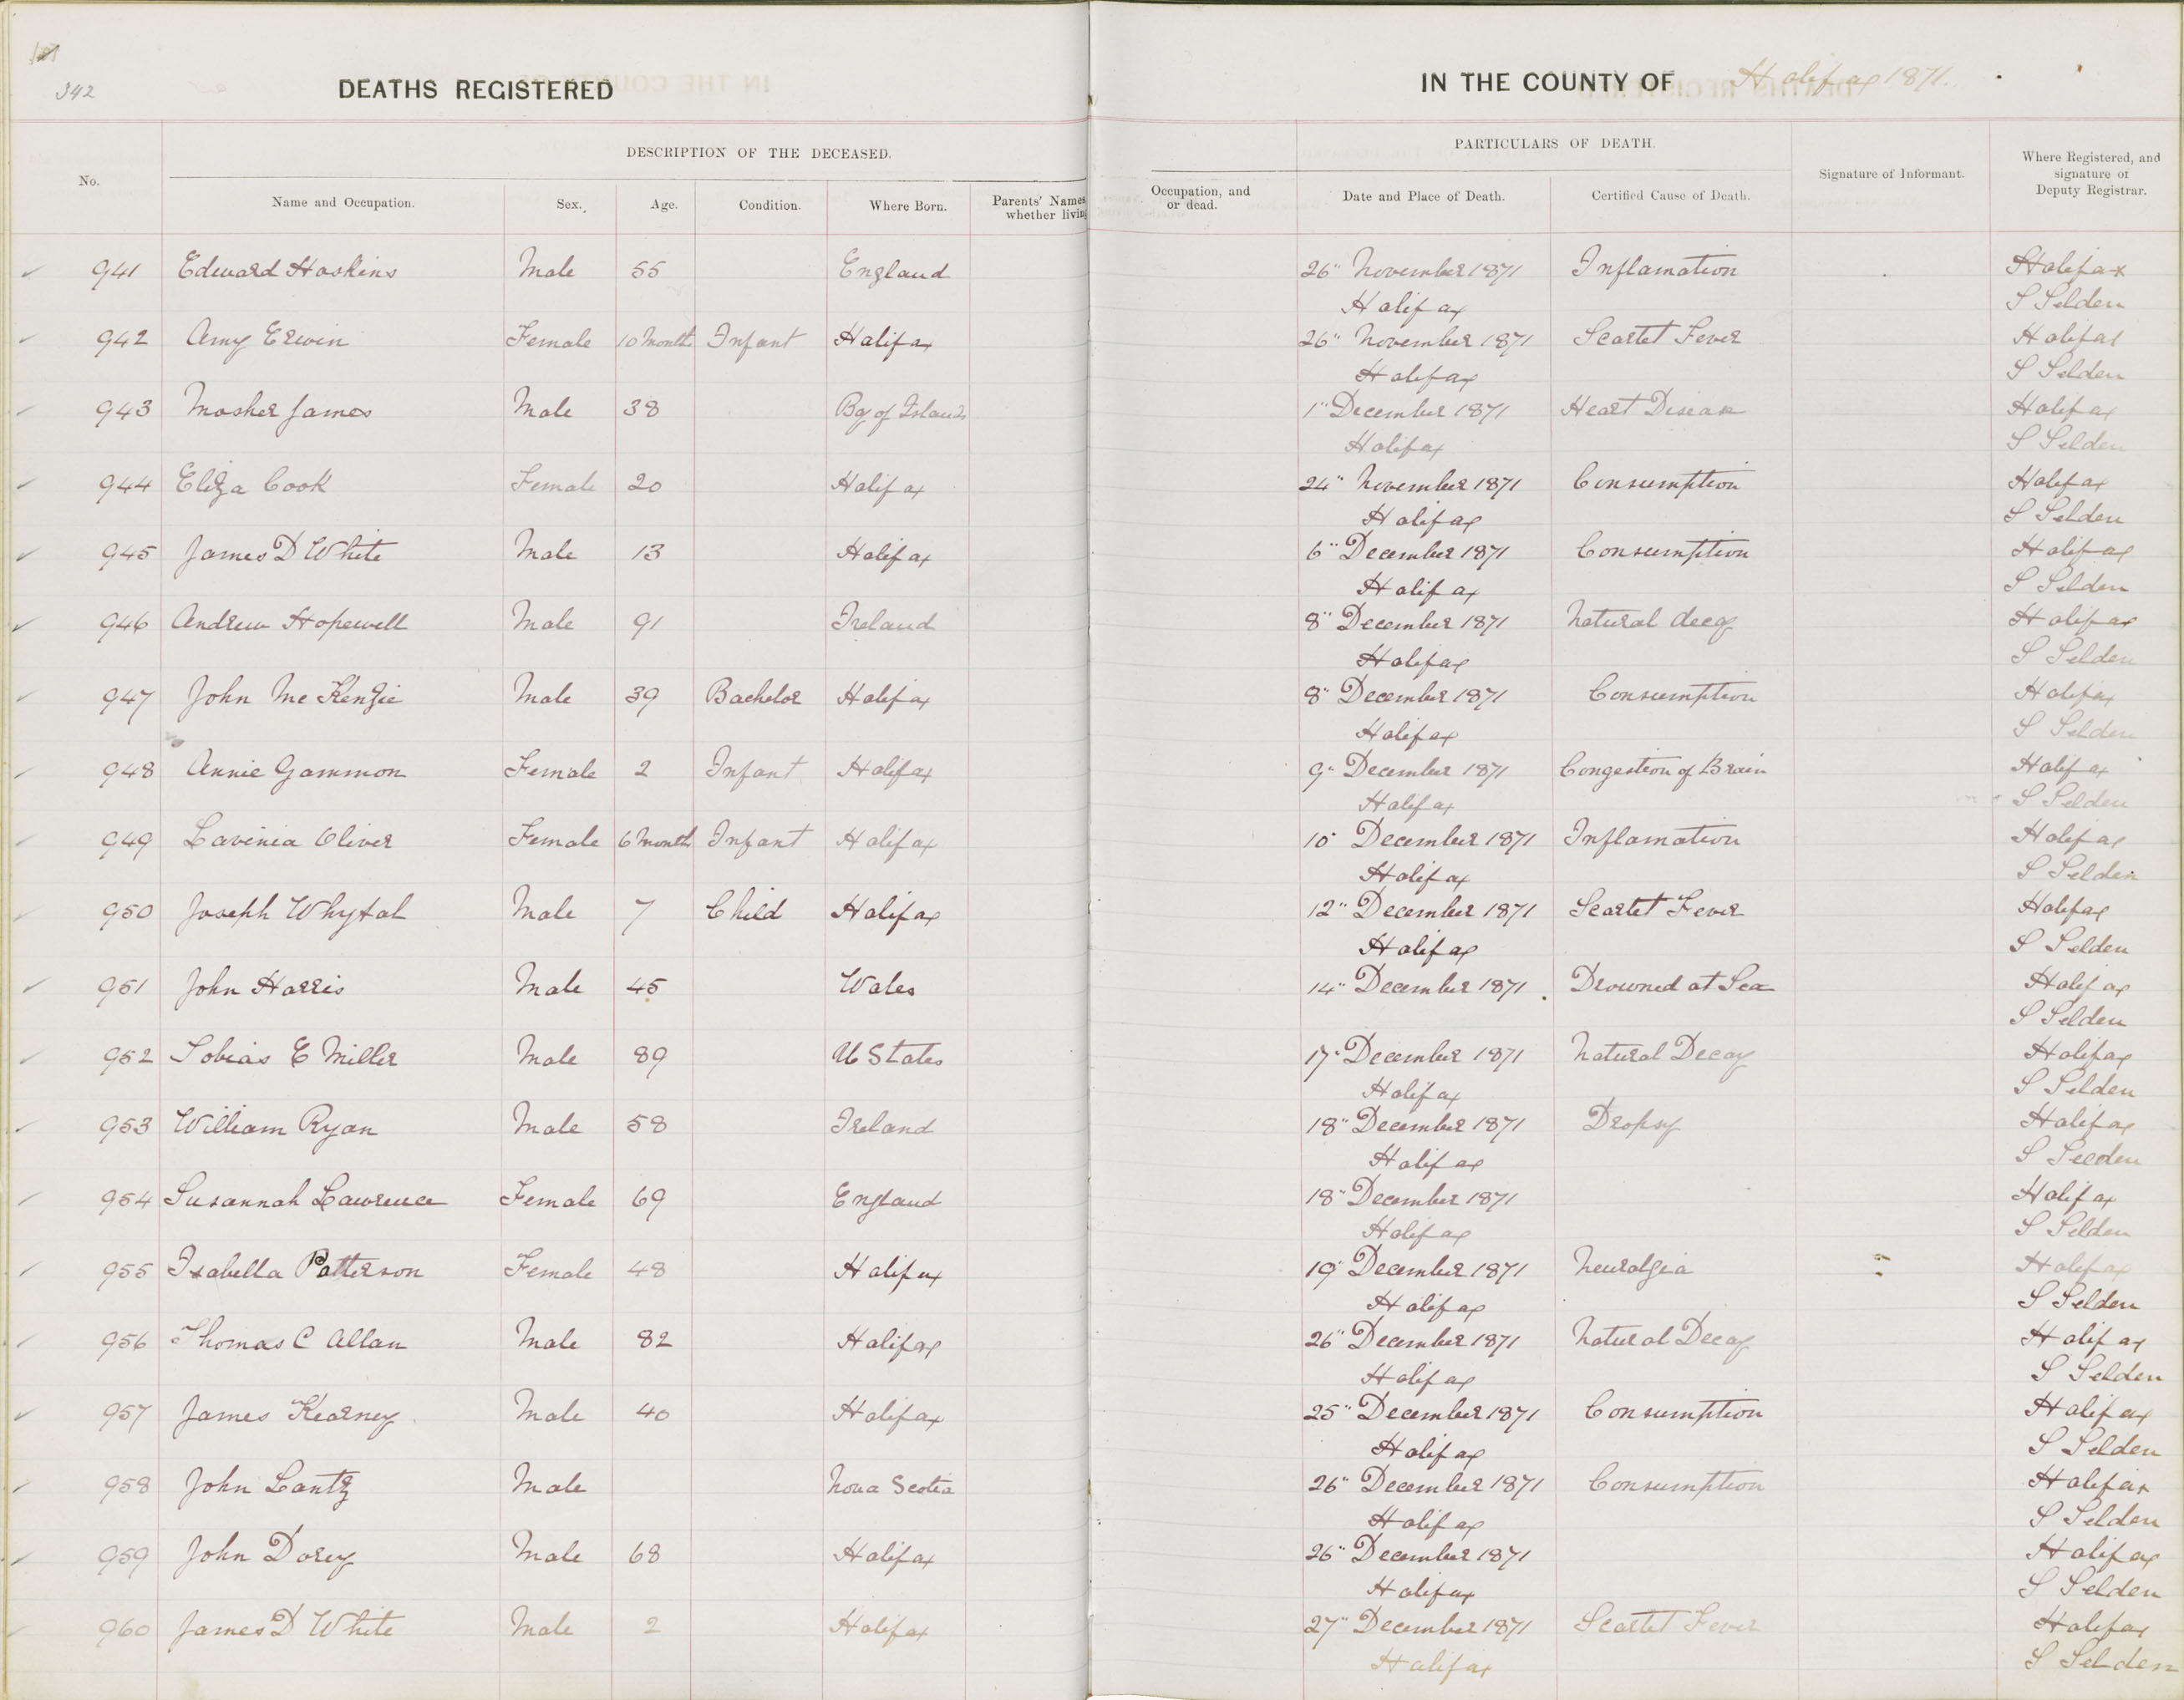 342
DEATHS REGISTERED IN THE COUNTY OF Halifax 1871.
DESCRIPTION OF THE DECEASED. PARTICULARS OF DEATH.
No. Name and Occupation. Sex. Age. Condition. Where Born. Parents' Names whether living Occupation, and or dead. Date and Place of Death. Certified Cause of Death. Signature of Informant. Where Registered, and signature of Deputy Registrar.
941 Edward Hoskins Male 55 England 26" November 1871 Inflamation Halifax
Halifax S Selden
942 Amy Erwin Female 10 Month Infant Halifax 26" November 1871 Scarlet Fever Halifax
Halifax S Selden
943 Mosher James Male 38 Bay of Islands 1" December 1871 Heart Disease Halifax
Halifax S Selden
944 Eliza Cook Female 20 Halifax 24" November 1871 Consumption Halifax
Halifax S Selden
945 James D White Male 13 Halifax 6" December 1871 Consumption Halifax
Halifax S Selden
946 Andrew Hopewell Male 91 Ireland 8" December 1871 Natural decay Halifax
Halifax S Selden
947 John McKenzie Male 39 Bachelor Halifax 8" December 1871 Consumption Halifax
Halifax S Selden
948 Annie Gammon Female 2 Infant Halifax 9" December 1871 Congestion of Brain Halifax
Halifax S Selden
949 Lavinia Oliver Female 6 Month Infant Halifax 10" December 1871 Inflamation Halifax
Halifax S Selden
950 Joseph Whytal Male 7 Child Halifax 12" December 1871 Scarlet Fever Halifax
Halifax S Selden
951 John Harris Male 45 Wales 14" December 1871 Drowned at Sea Halifax
S Selden
952 Tobias E Miller Male 89 U States 17" December 1871 Natural Decay Halifax
Halifax S Selden
953 William Ryan Male 58 Ireland 18" December 1871 Dropsy Halifax
Halifax S Selden
954 Susannah Lawrence Female 69 England 18" December 1871 Halifax
Halifax S Selden
955 Isabella Patterson Female 48 Halifax 19" December 1871 Neuralgia Halifax
Halifax S Selden
956 Thomas C Allan Male 82 Halifax 26" December 1871 Natural Decay Halifax
Halifax S Selden
957 James Kearney Male 40 Halifax 25" December 1871 Consumption Halifax
Halifax S Selden
958 John Lantz Male Nova Scotia 26" December 1871 Consumption Halifax
Halifax S Selden
959 John Dorey Male 68 Halifax 26" December 1871 Halifax
Halifax S Selden
960 James D White Male 2 Halifax 27" December 1871 Scarlet Fever Halifax
Halifax S Selden